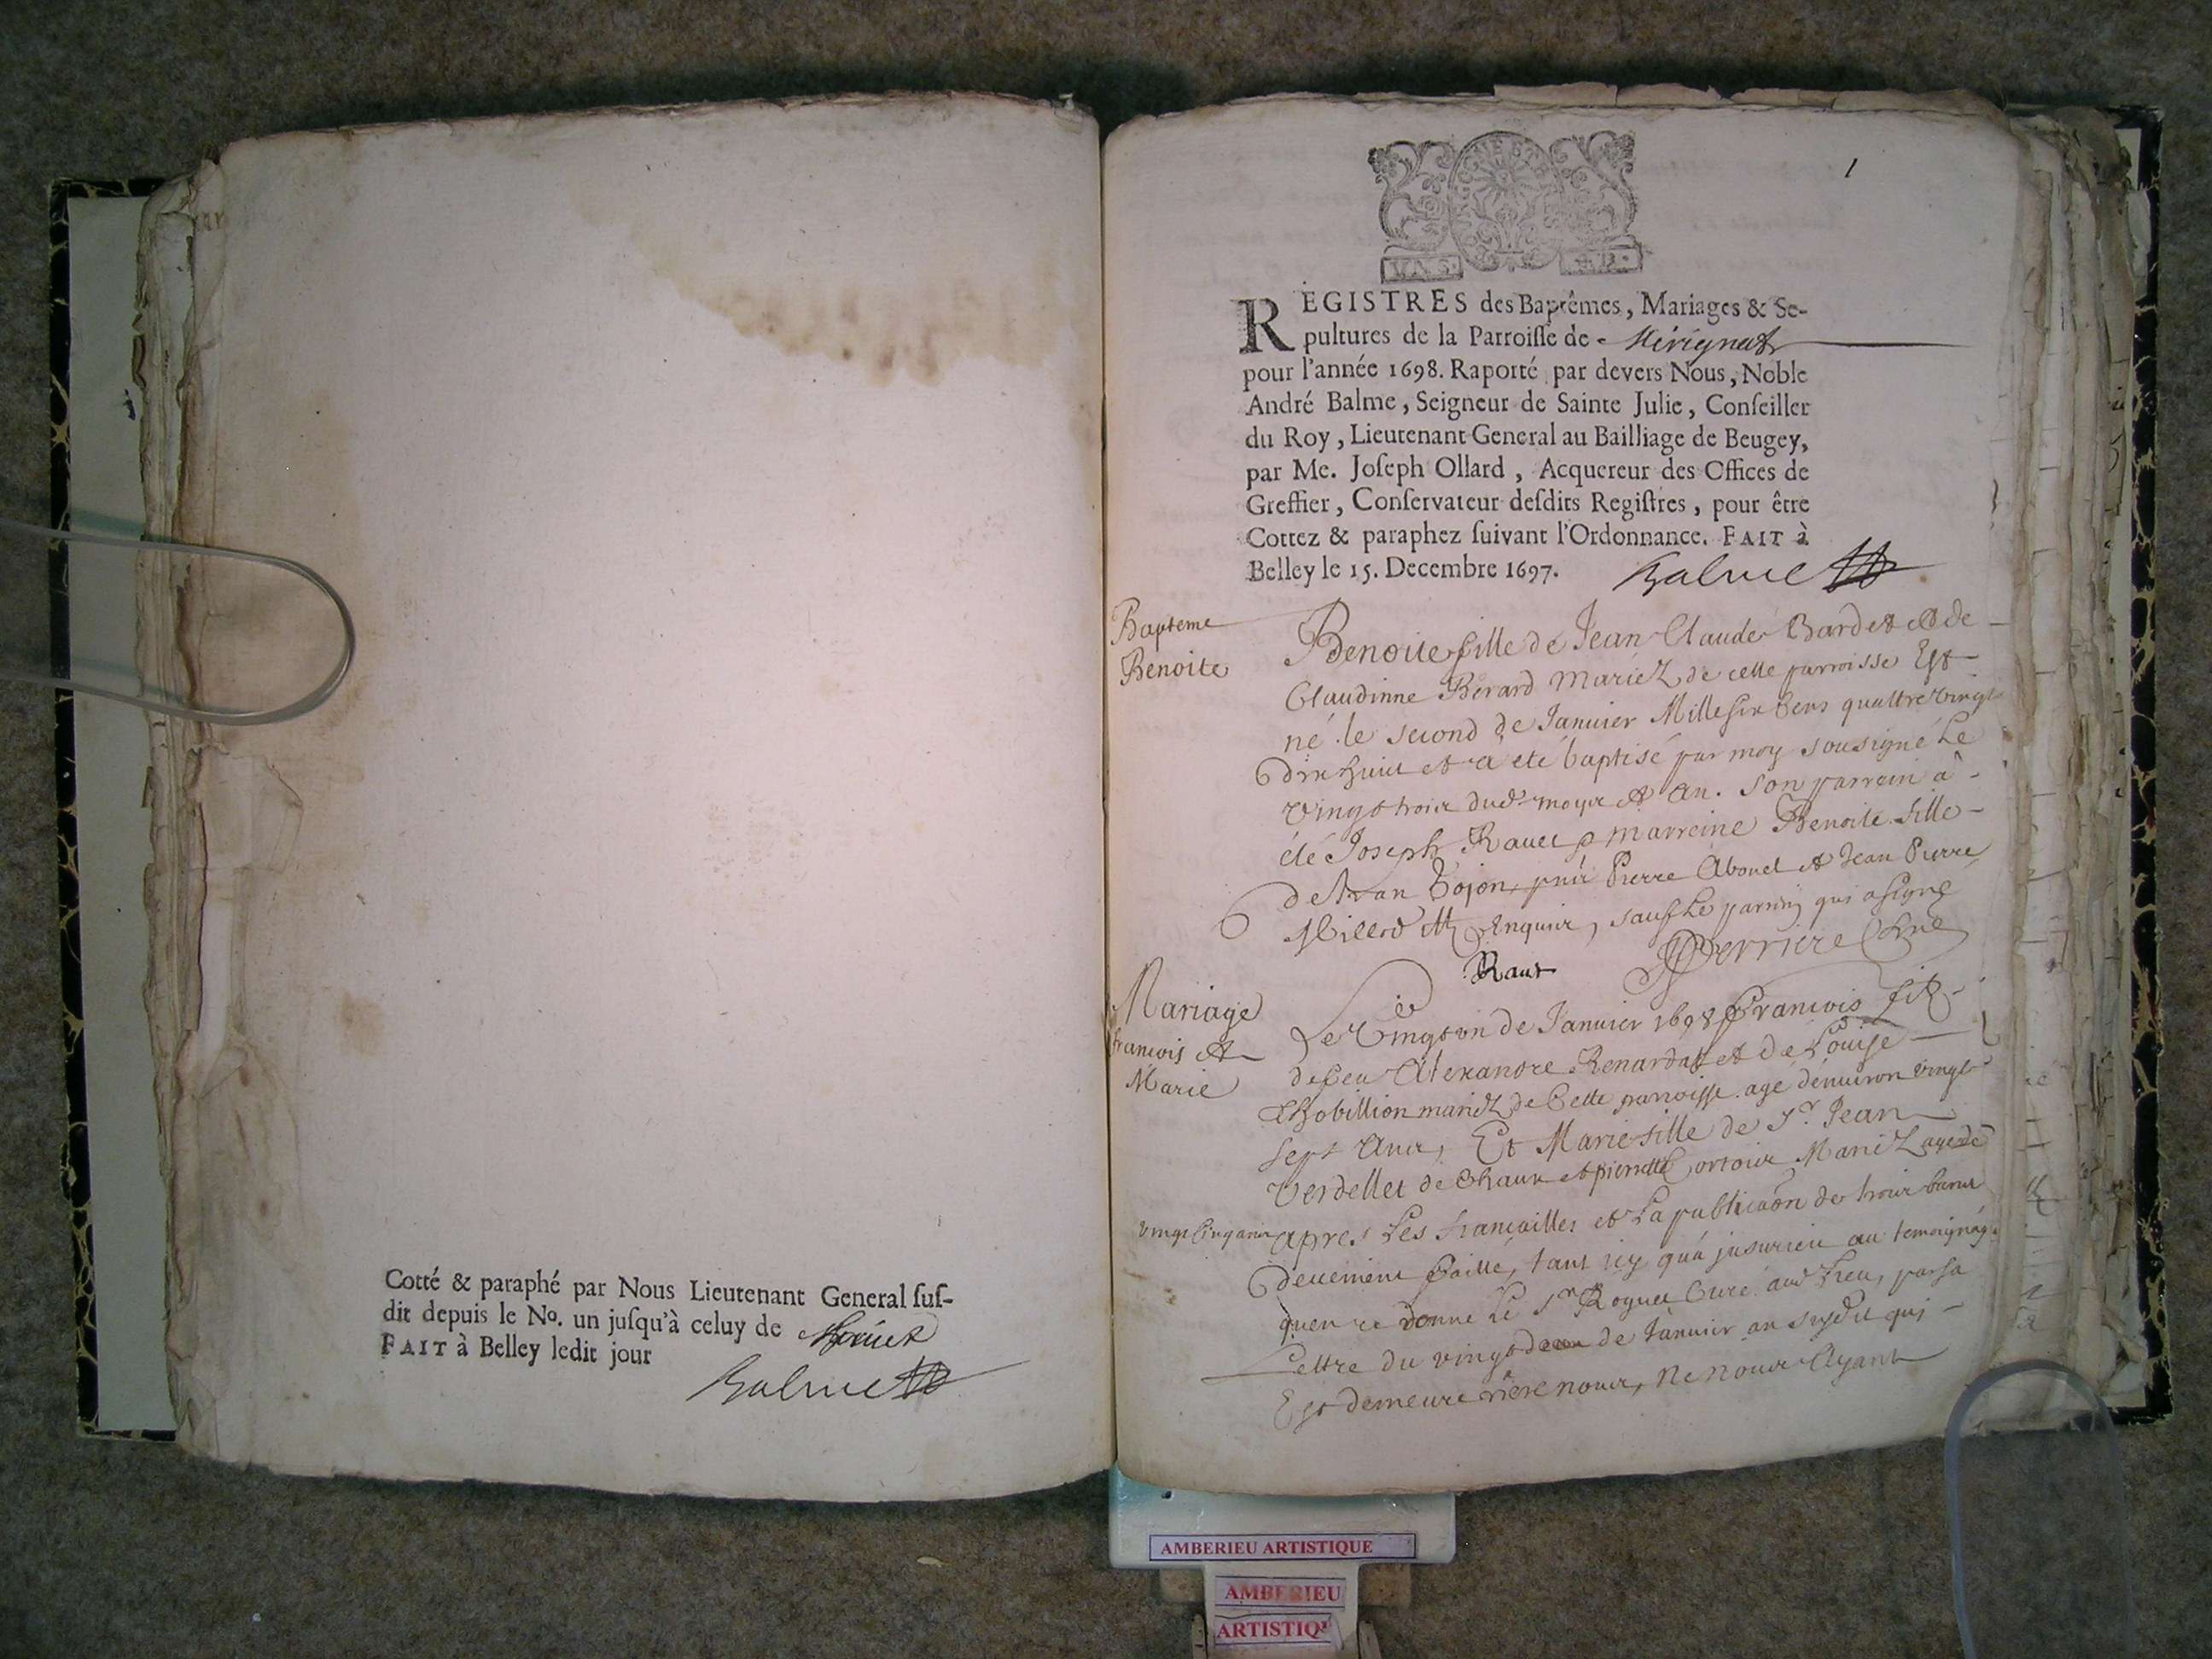 Cotté & paraphé par Nous Lieutenant General suſ-
dit depuis le No. un juſqu'à celuy de
FAIT à Belley ledit jour
Balme
1
REGISTRES des Baptêmes, Mariages & Se-
pultures de la Parroiſſe de Mérignat
pour l'année 1698. Raporté par devers Nous, Noble
André Balme, Seigneur de Sainte Julie, Conſeiller
du Roy, Lieutenant General au Bailliage de Beugey,
par Me. Joſeph Ollard, Acquereur des Offices de
Greffier, Conſervateur deſdits Regiſtres, pour être
Cottez & paraphez ſuivant l'Ordonnance. FAIT à
Belley le 15. Decembre 1697.
Balme
Bapteme
Benoite
Benoite fille de Jean Claude Bardet et de
Claudinne Bérard mariéz de cette parroisse Est
né le second de Januier Mille six Cens quattre vingt
dix huict et a été baptisé par moy sousigné Le
vingt trois dud. moys et an. Son parrain a
été Joseph Rauet marreine Benoite fille
de Jean Pierre Abouel et Jean Pierre
Enquis, sauf Le parrin qui a signé
Raut
Perriere Curé
Mariage
francois et
Marie
Le vingt de Januier 1698 Francois fils
de feu Alexandre Renardat et de Louise
Chobillion mariéz de Cette parroisse agé d'enuiron vingt
sept ans, Et Marie fille de Sr. Jean
Verdellet de Chaux et pierrette Mariéz agée de
vingt Cinq ans apres Les fiancailles et La publicaon de trois bans
deuement faitte, tant icy qu'a jusurieu au temoignage
qu'en a donné Le Sr Roguet Curé aud. Lieu, par sa
Lettre du vingt deux de Januier an susdit qui
Est demeuré riere nous, ne nous Ayant
AMBERIEU ARTISTIQUE
AMBERIEU
ARTISTIQ